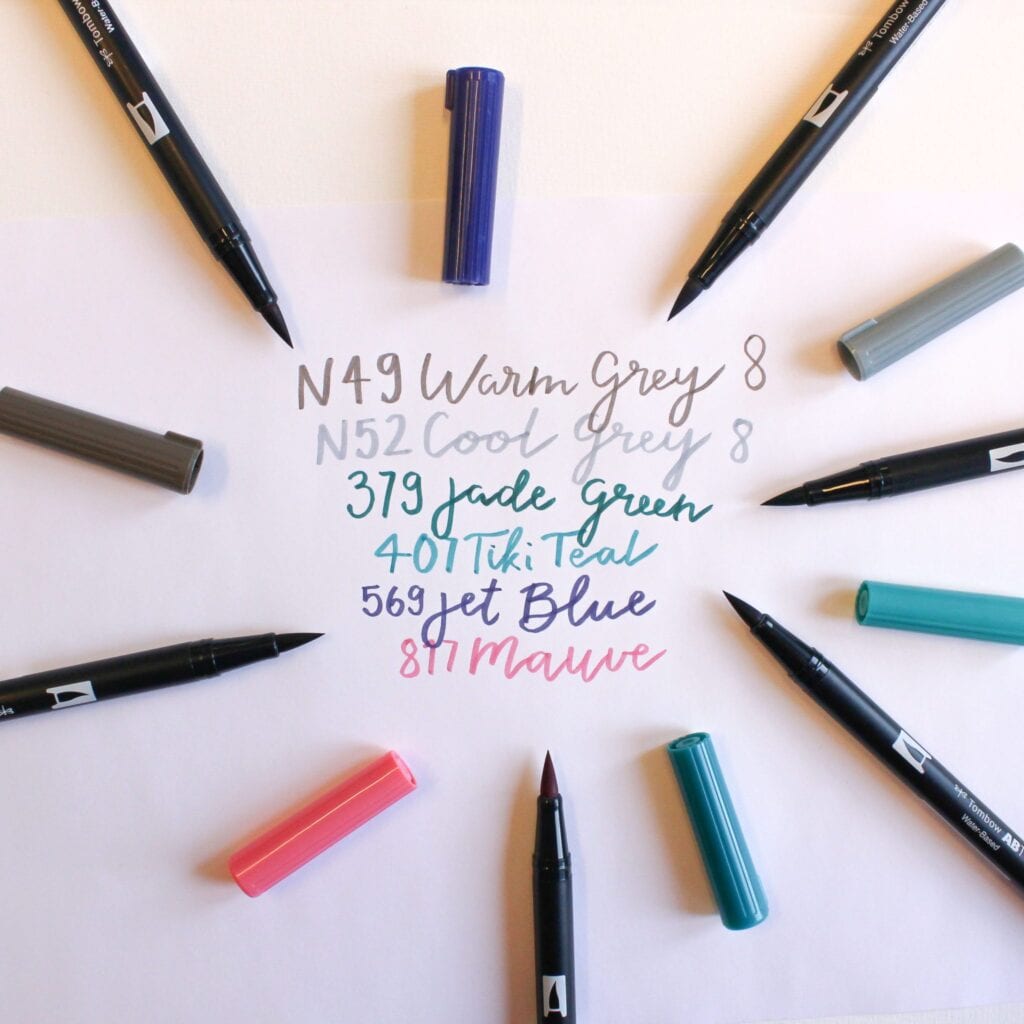 Tombow
Water-Based
Tombow
Water-Based
N49 Warm Grey 8
N52 Cool Grey 8
379 Jade Green
407 Tiki Teal
569 Jet Blue
817 Mauve
Tombow AB
Water-Based